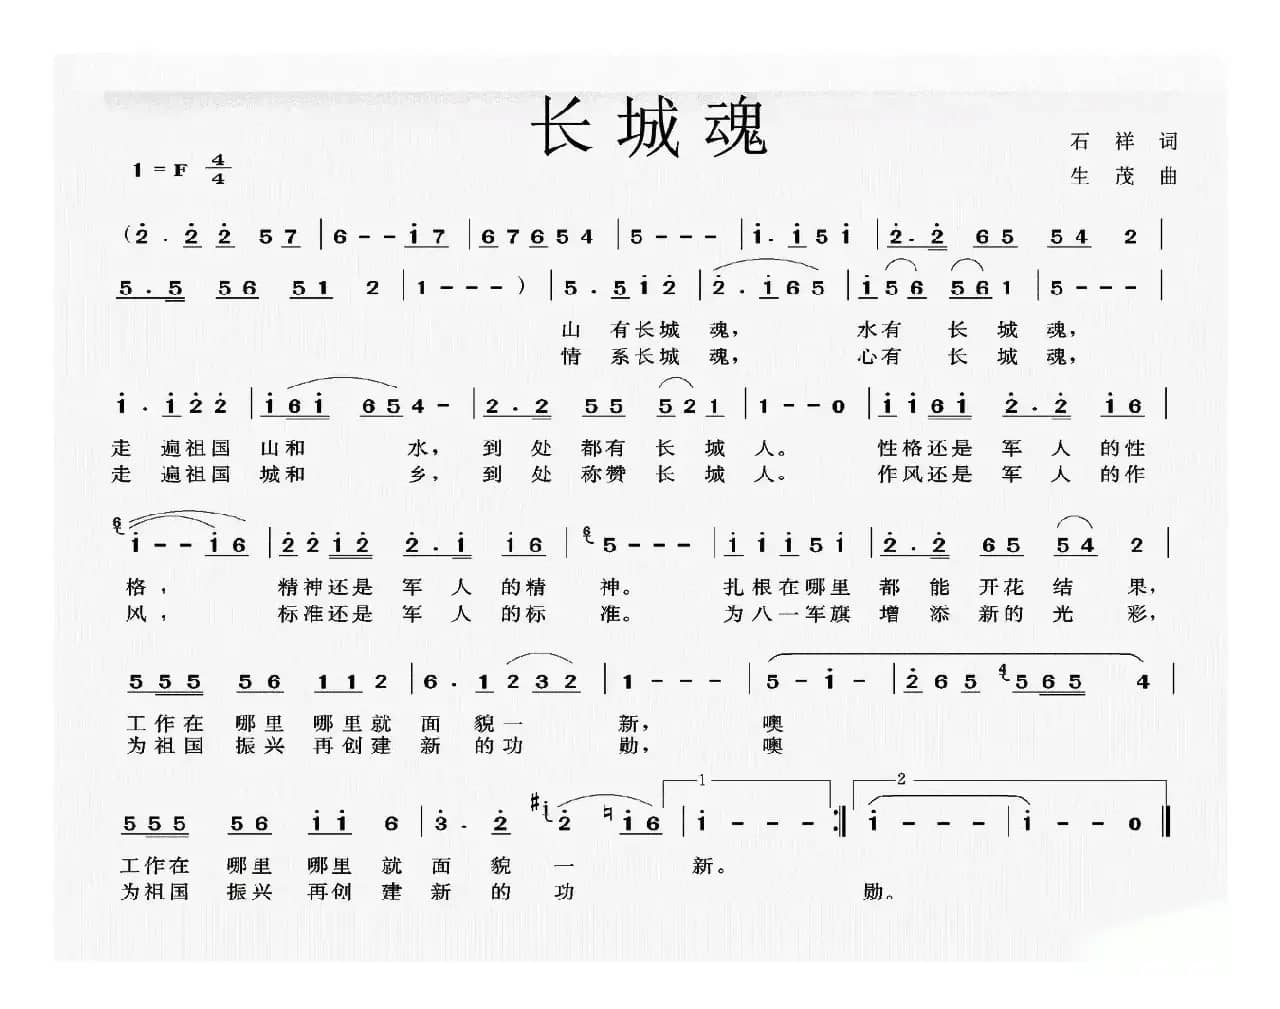 长城魂
石祥词
1=F 4/4
生茂曲
(2̇. 2̇ 2̇ 5 7 | 6 - - 1̇ 7 | 6 7 6 5 4 | 5 - - - | 1̇. 1̇ 5 1̇ | 2̇. 2̇ 6 5 5 4 2 |
5. 5 5 6 5 1 2 | 1 - - - ) | 5. 5 1̇ 2̇ | 2̇. 1̇ 6 5 | 1̇ 5 6 5 6 1 | 5 - - - |
山 有长城 魂， 水有 长 城 魂，
情 系长城 魂， 心有 长 城 魂，
1̇. 1̇ 2̇ 2̇ | 1̇ 6 1̇ 6 5 4 - | 2. 2 5 5 5 2 1 | 1 - - 0 | 1̇ 1̇ 6 1̇ 2̇. 2̇ 1̇ 6 |
走 遍祖国 山和 水， 到 处 都有 长 城 人。 性格还是 军 人 的性
走 遍祖国 城和 乡， 到 处 称赞 长 城 人。 作风还是 军 人 的作
6 1̇ - - 1̇ 6 | 2̇ 2̇ 1̇ 2̇ 2̇. 1̇ 1̇ 6 | 6 5 - - - | 1̇ 1̇ 1̇ 5 1̇ | 2̇. 2̇ 6 5 5 4 2 |
格， 精神还是 军 人 的精 神。 扎根在哪里 都 能 开花 结 果，
风， 标准还是 军 人 的标 准。 为八一军旗 增 添 新的 光 彩，
5 5 5 5 6 1 1 2 | 6. 1 2 3 2 | 1 - - - | 5 - 1̇ - | 2̇ 6 5 4 5 6 5 4 |
工作在 哪里 哪里就 面 貌一 新， 噢
为祖国 振兴 再创建 新 的功 勋， 噢
1 2
5 5 5 5 6 1̇ 1̇ 6 | 3̇. 2̇ #1̇ 2̇ ♮1̇ 6 | 1̇ - - - :| 1̇ - - - | 1̇ - - 0 ||
工作在 哪里 哪里 就 面 貌 一 新。
为祖国 振兴 再创 建 新 的 功 勋。